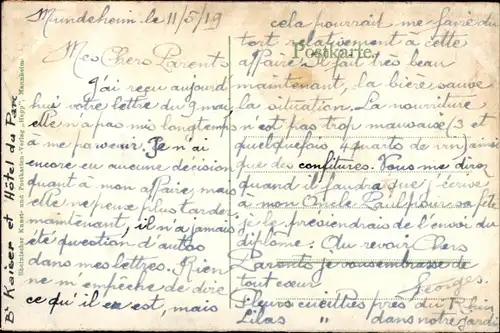 Mundenheim le 11/5/19
Mes Chers Parents
J'ai reçu aujourd'
hui votre lettre du 9 mai
elle n'a pas mis longtemps
à me parvenir. Je n'ai
encore eu aucune décision
quant à mon affaire, mais
elle ne peux plus tarder
maintenant, il n'a jamais
été question d'autos
dans mes lettres. Rien
ne m'empêche de dire
ce qu'il en est, mais
cela pourrait me faire du
tort relativement à cette
affaire. Il fait très beau
maintenant, la bière sauve
la situation. La nourriture
n'est pas trop mauvaise (3 et
quelquefois 4 quarts de vin) ainsi
que des confitures. Vous me direz
quand il faudra que j'écrive
à mon Oncle Paul pour sa fête
je le préviendrais de l'envoi du
diplôme. Au revoir Chers
Parents je vous embrasse de
tout coeur Georges.
Fleurs cueillies près du Rhin
Lilas " dans notre jardin
Postkarte
Rheinischer Kunst- und Postkarten-Verlag „Hepp", Mannheim.
Bd Kaiser et Hôtel du Parc